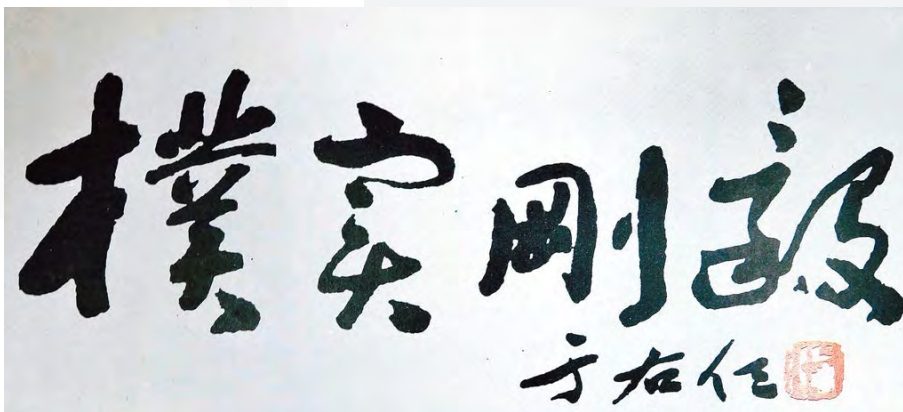 樸实剛毅
于右任